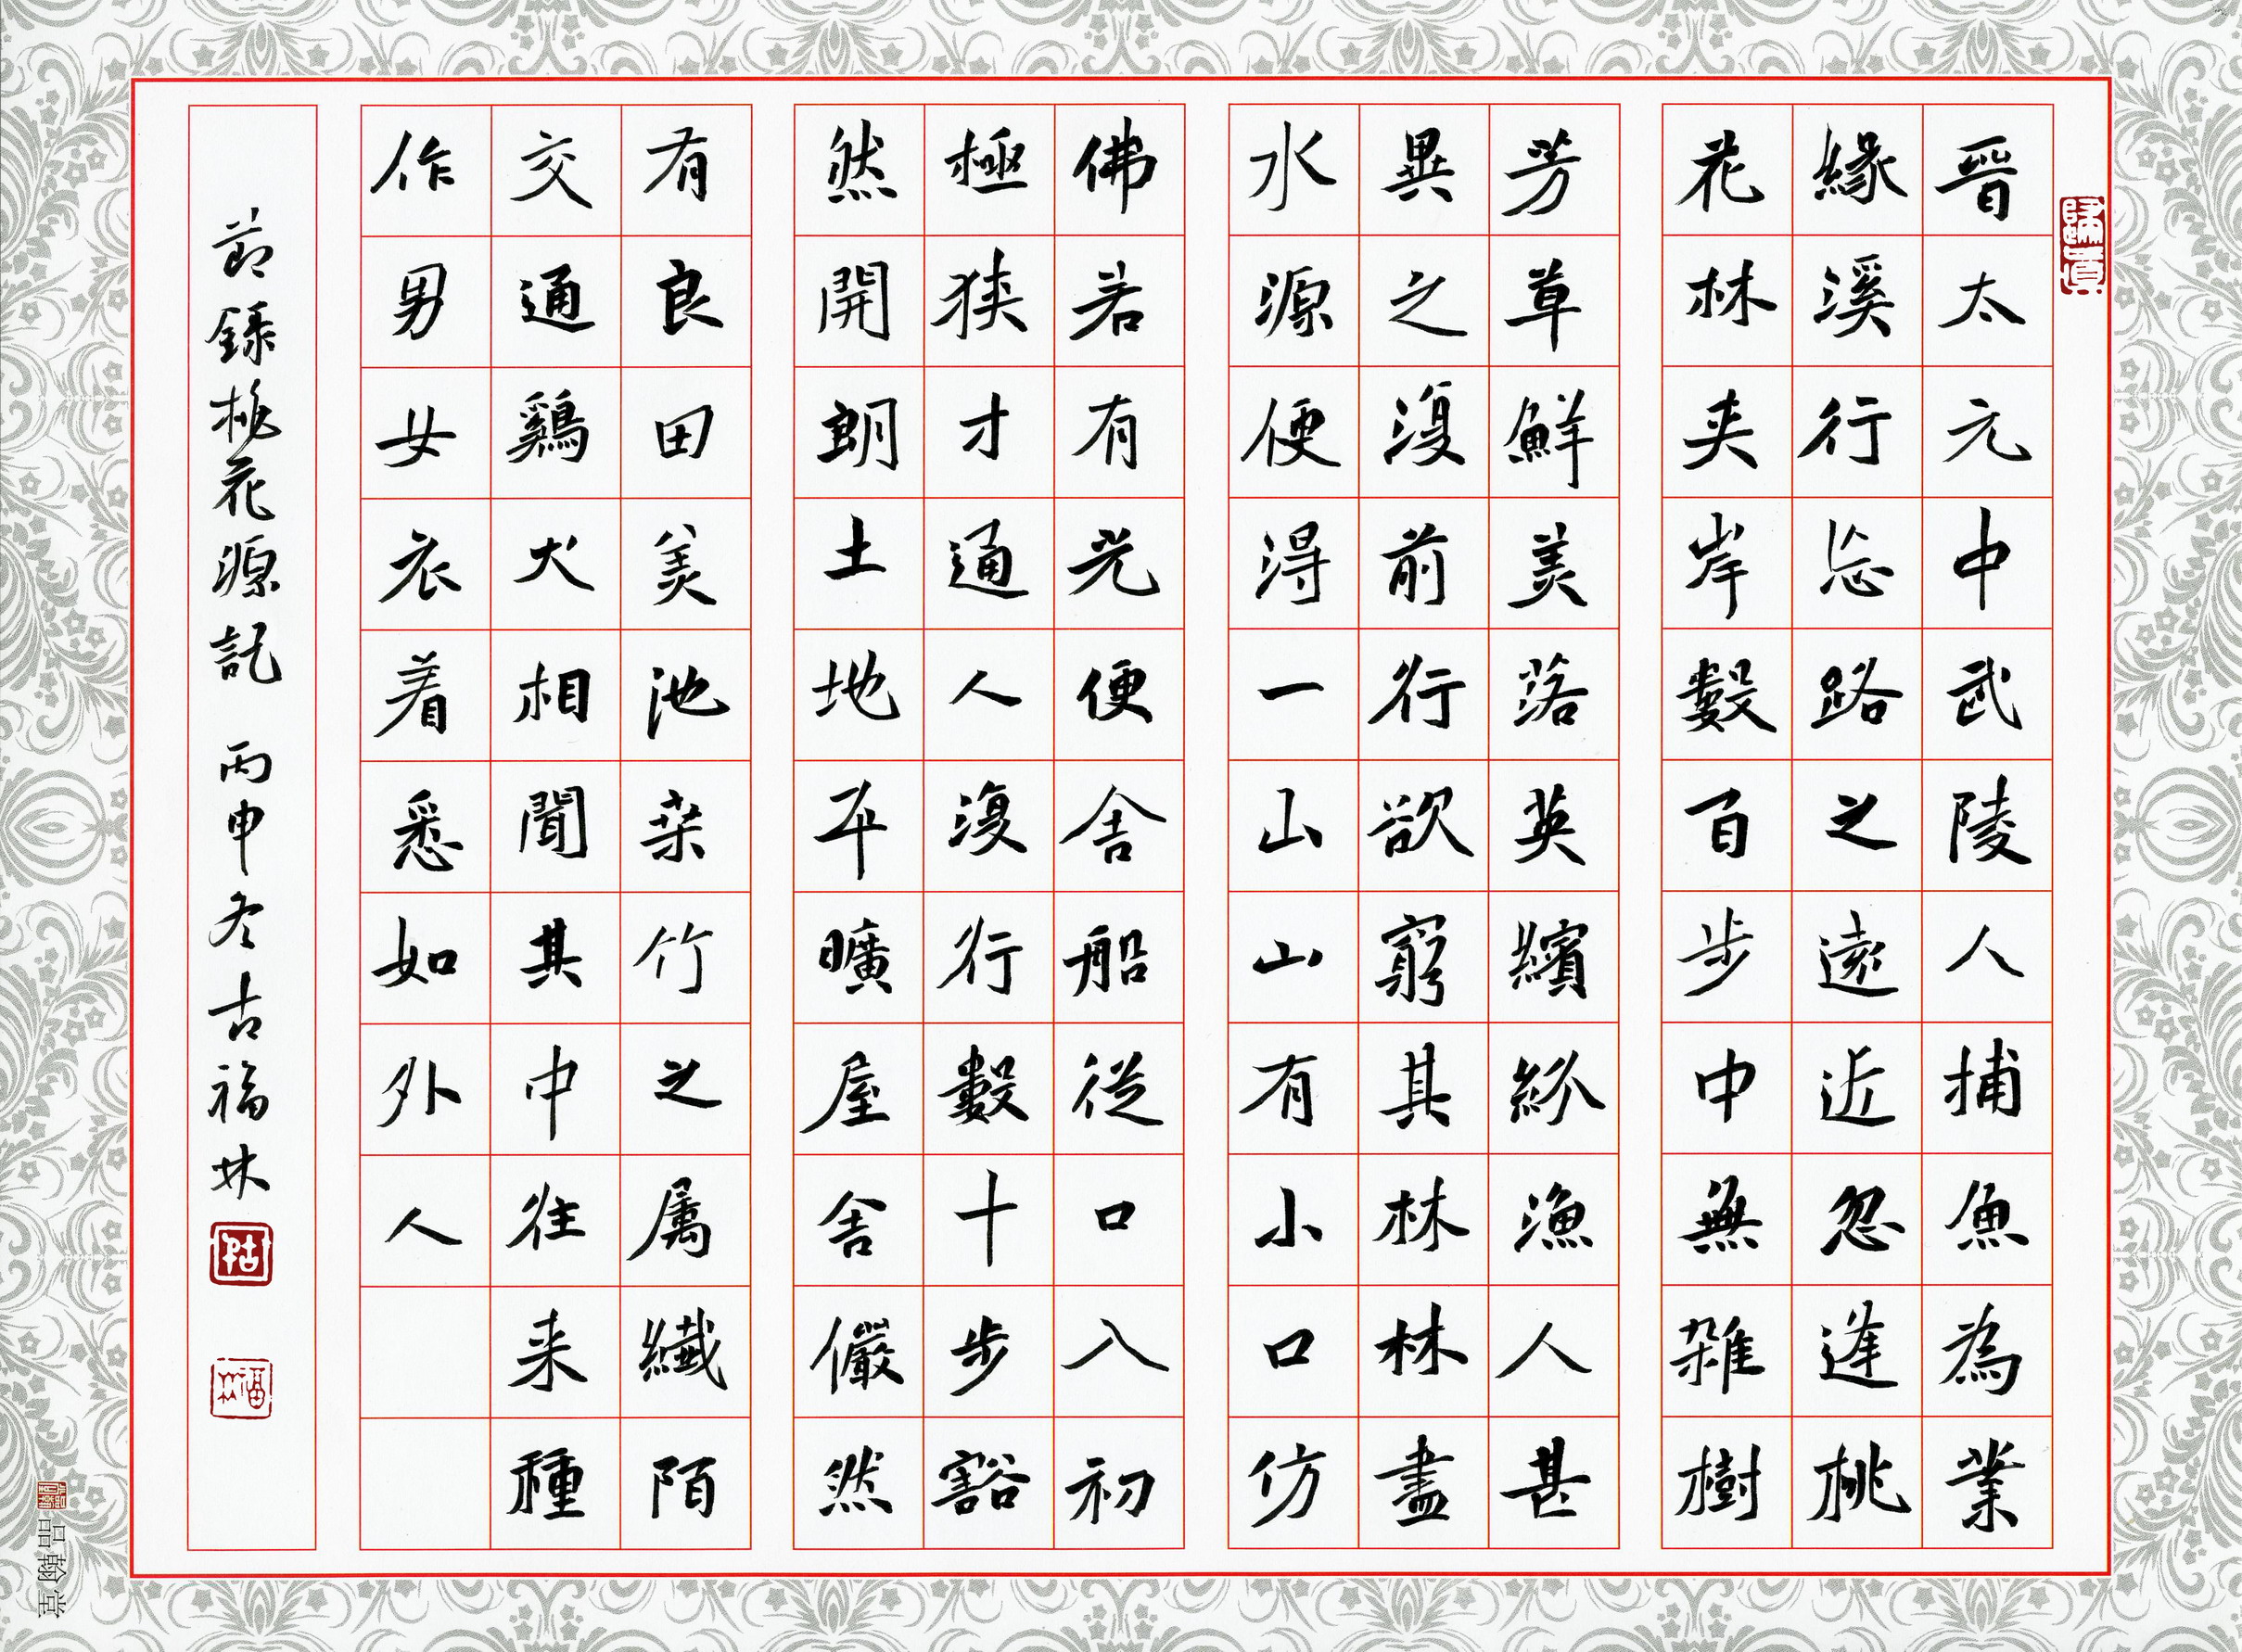 歸真
晉太元中武陵人捕魚為業
緣溪行忘路之遠近忽逢桃
花林夾岸數百步中無雜樹
芳草鮮美落英繽紛漁人甚
異之復前行欲窮其林林盡
水源便得一山山有小口仿
佛若有光便舍船從口入初
極狹才通人復行數十步豁
然開朗土地平曠屋舍儼然
有良田美池桑竹之属纖陌
交通鷄犬相聞其中往来種
作男女衣着悉如外人
節錄桃花源記 丙申冬古福林
福林
品翰堂